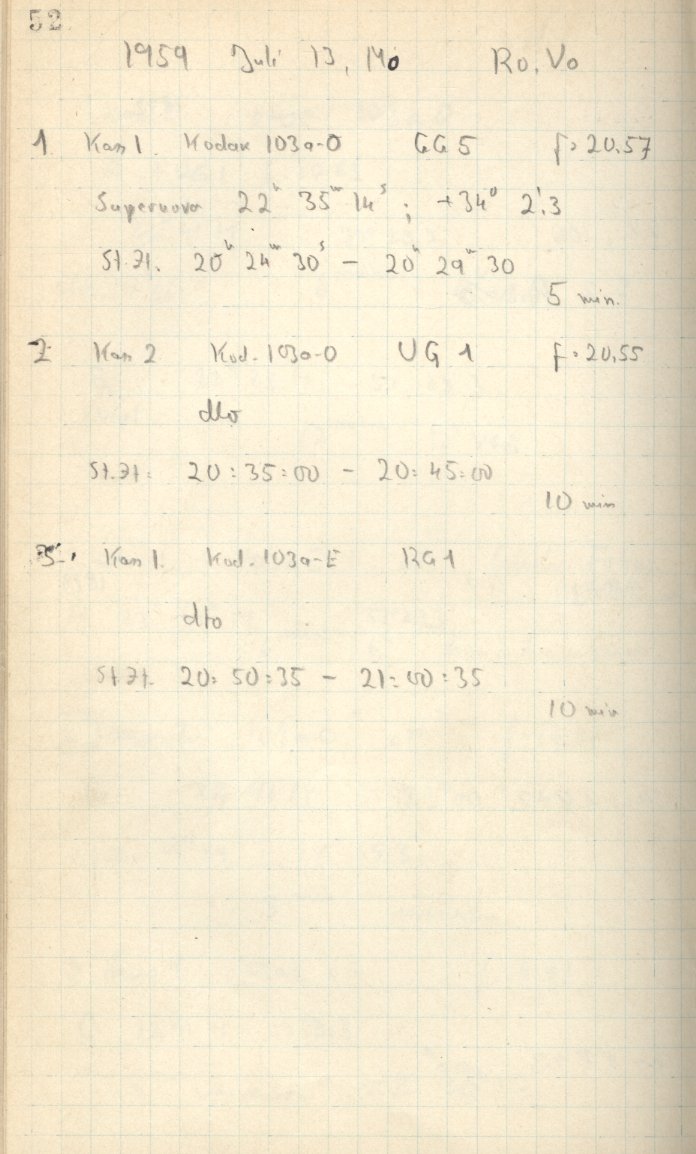 52
1959 Juli 13, Mo Ro, Vo
1 Kas 1 Kodak 103a-O GG 5 f = 20.57
Supernova 22ʰ 35ᵐ 14ˢ ; +34° 2'.3
St.Zt. 20ʰ 24ᵐ 30ˢ – 20ʰ 29ᵐ 30
5 min.
2 Kas 2 Kod. 103a-O UG 1 f = 20.55
dto
St.Zt. 20:35:00 – 20:45:00
10 min
3. Kas 1. Kod. 103a-E RG 1
dto
St.Zt. 20:50:35 – 21:00:35
10 min